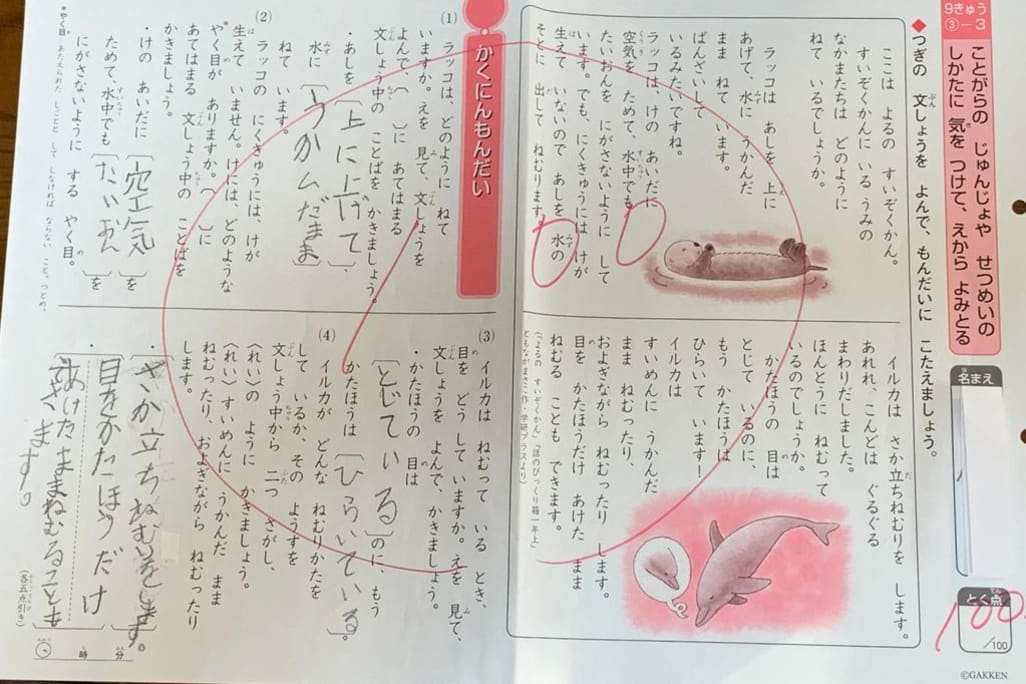 9きゅう
③-3
ことがらの じゅんじょや せつめいの
しかたに 気を つけて、えから よみとる
名まえ
とく点
100
/100
©GAKKEN
◆つぎの 文しょうを よんで、もんだいに こたえましょう。
ここは よるの すいぞくかん。
すいぞくかんに いる うみの
なかまたちは どのように
ねて いるでしょうか。
ラッコは あしを 上に
あげて、水に うかんだ
まま ねて います。
ばんざいして
いるみたいですね。
ラッコは、けの あいだに
空気を ためて、水中でも
たいおんを にがさないように して
います。でも、にくきゅうには けが
生えて いないので あしを 水の
そとに 出して ねむります。
イルカは さか立ちねむりを します。
あれれ、こんどは ぐるぐる
まわりだしました。
ほんとうに ねむって
いるのでしょうか。
かたほうの 目は
とじて いるのに、
もう かたほうは
ひらいて います!
イルカは
すいめんに うかんだ
まま ねむったり、
およぎながら ねむったり します。
目を かたほうだけ あけた まま
ねむる ことも できます。
かくにんもんだい
(1)
ラッコは、どのように ねて
いますか。えを 見て、文しょうを
よんで、〔 〕に あてはまる
文しょう中の ことばを かきましょう。
・あしを〔上に上げて〕、
水に〔うかムだまま〕
ねて います。
(2)
ラッコの にくきゅうには、けが
生えて いません。けには、どのような
やく目が ありますか。〔 〕に
あてはまる 文しょう中の ことばを
かきましょう。
・けの あいだに〔空気〕を
ためて、水中でも〔たいおん〕を
にがさないように する やく目。
(3)
イルカは ねむって いる とき、
目を どう して いますか。えを 見て、
文しょうを よんで、かきましょう。
・かたほうの 目は
〔とじている〕のに、もう
かたほうは〔ひらいている〕。
(4)
イルカが どんな ねむりかたを
して いるか、その ようすを
文しょう中から 二つ さがし、
〈れい〉の ように かきましょう。
〈れい〉すいめんに うかんだ まま
ねむったり、およぎながら ねむったり
します。
・さか立ちねむりをします。
・目をかたほうだけ
あけたままねむることも
できます。
(各五点引き)
時 分